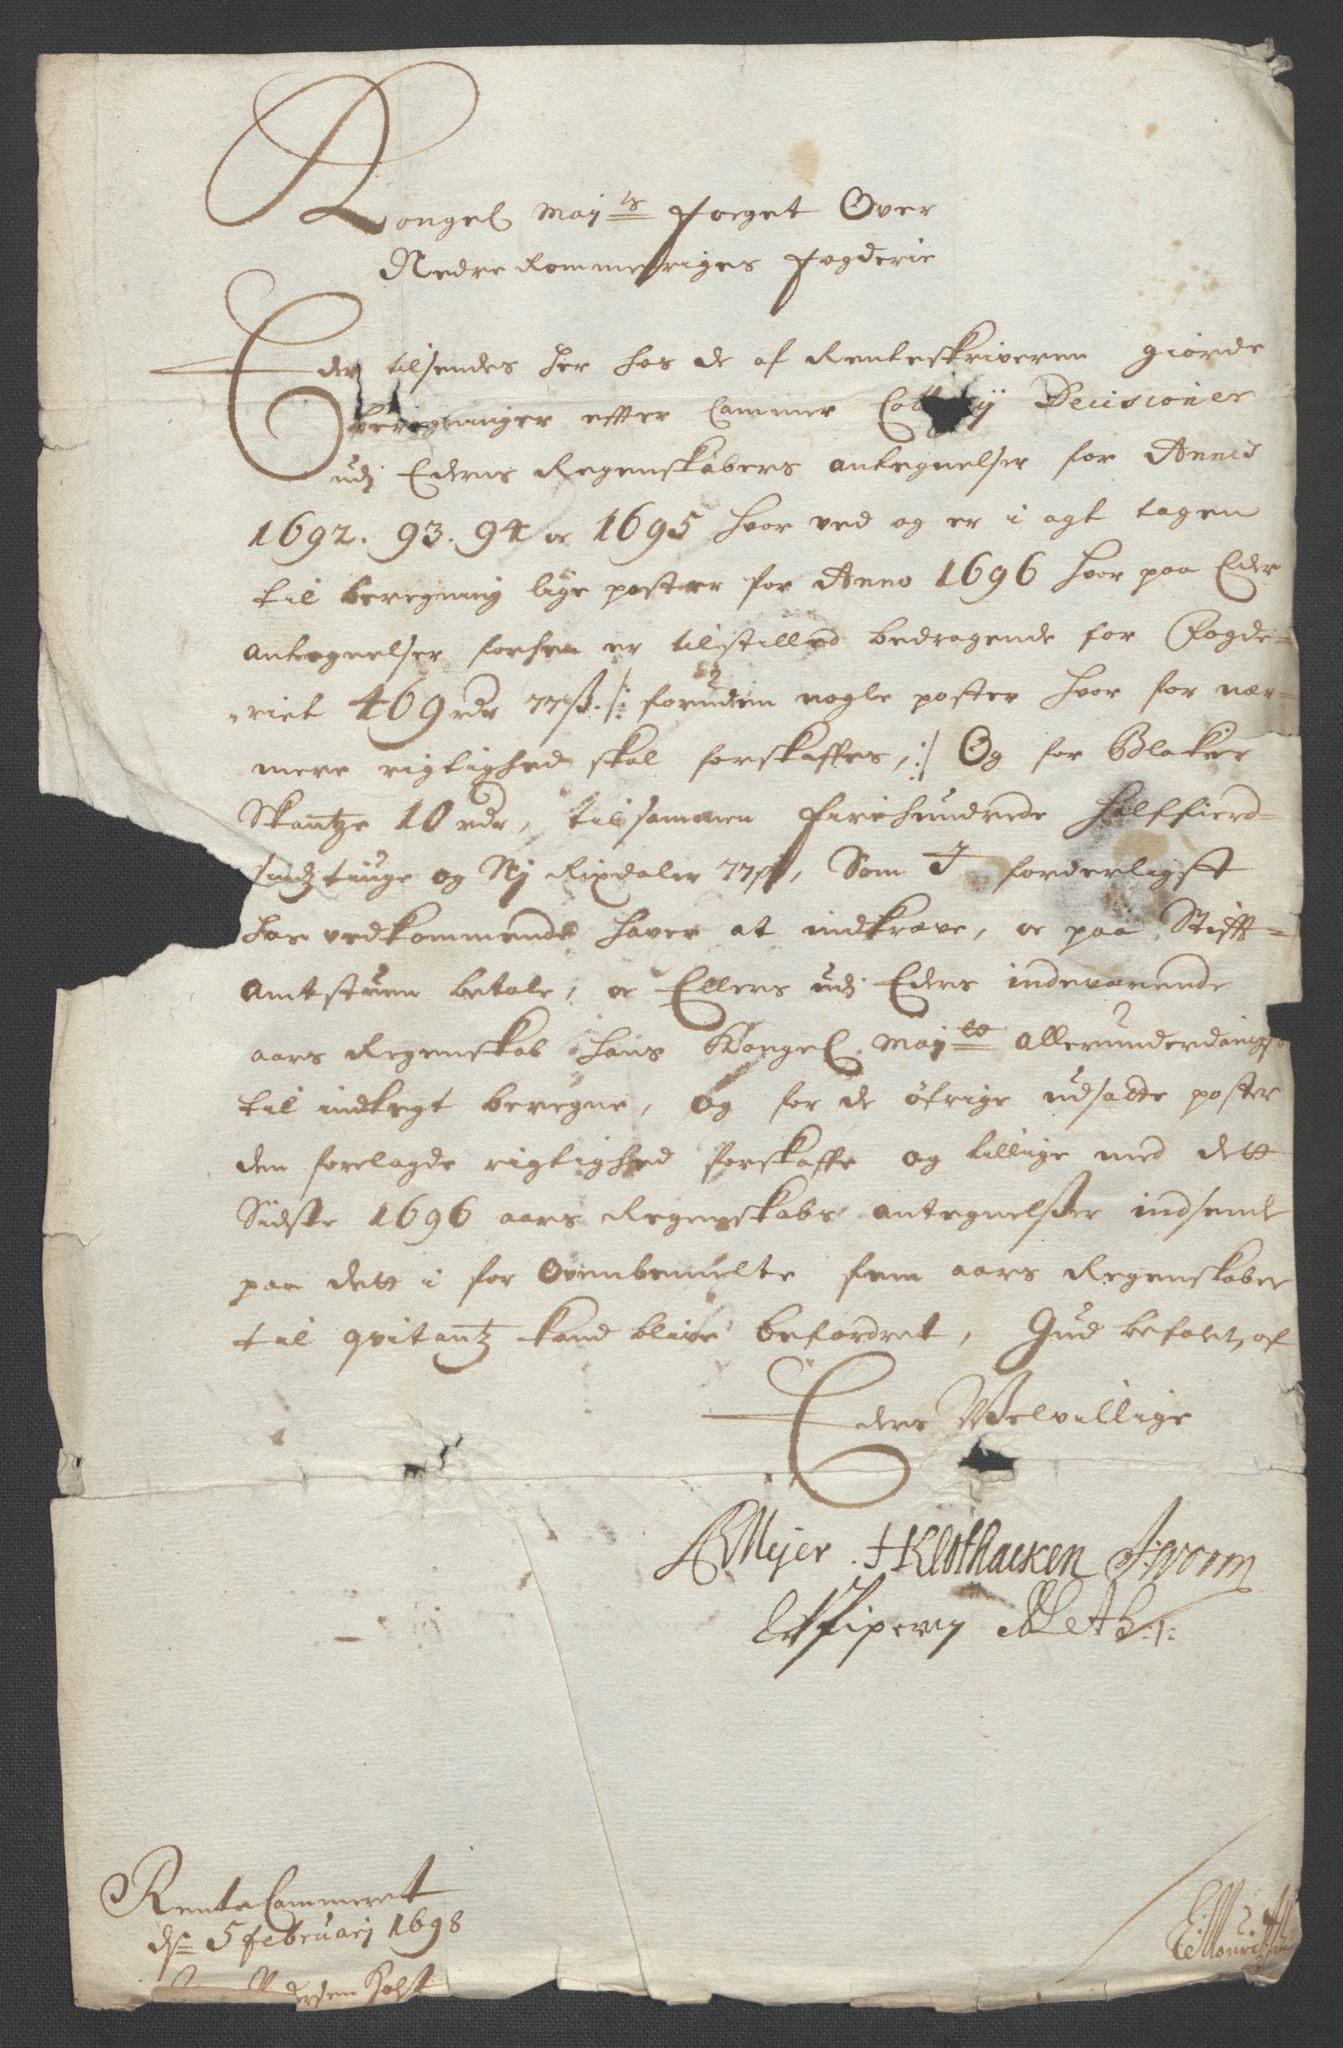 Kongel May.ts Foeget Over
Nedre Rommeriges Fogderie
Eder tilsendes her hos de af Renteskriveren giorde
beregninger effter Cammer Collegij Decisioner
udj Eders Regenskabers antegnelser for Annis
1692. 93. 94 oc 1695 hvor ved og er i agt tagen
til beregning lige poster for Anno 1696 hvor paa Eder
antegnelser forhen er tilstilled bedragende for Fogde-
riet 469 rdr 77 ß. /: foruden nogle poster hvor for nær-
mere rigtighed skal forskaffes, :/ Og for Blakier
Skantze 10 rdr, tilsammen Firehundrede halffierd-
sindz tiuge og Nj Rixdaler 77 ß, Som I forderligst
hos vedkommende haver at indkræve, oc paa Stiffts-
amtstuen betale, oc Ellers udj Eders indeværende
aars Regenskab hans Kongel. May.tt allerunderdanigst
til indtegt beregne, Og for de öfrige udsatte poster
den forelagde rigtighed forskaffe og tillige med dett
Sidste 1696 aars Regenskabs antegnelser indsende
paa dett i for Ovenbemelte fem aars Regenskaber
til qvitantz kand blive befordret, Gud befalet, af
Eders Velvillige
Meyer HKlothacken J: Worm
Rente Cammeret
d: 5 februarj 1698
ersen Holst